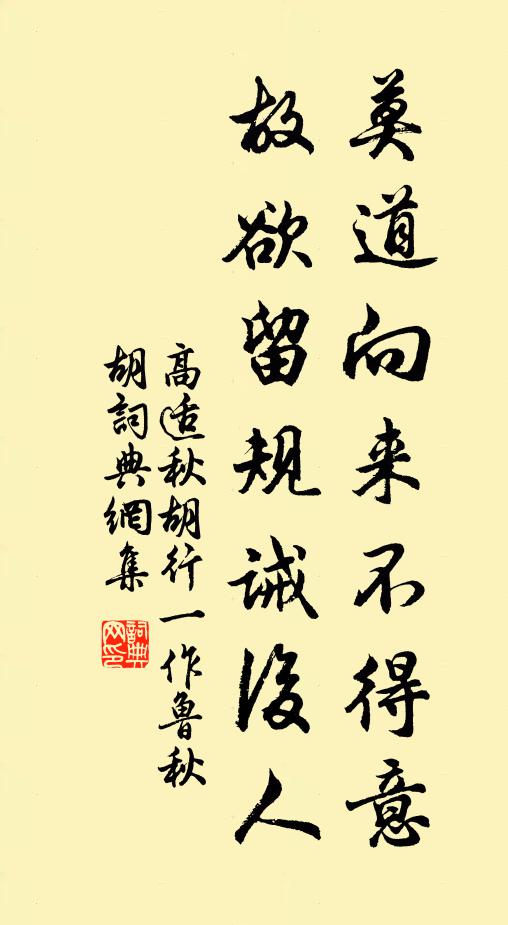 莫道向来不得意
故欲留規誡後人
高适秋胡行一作魯秋
胡詞典網集
詞典网印